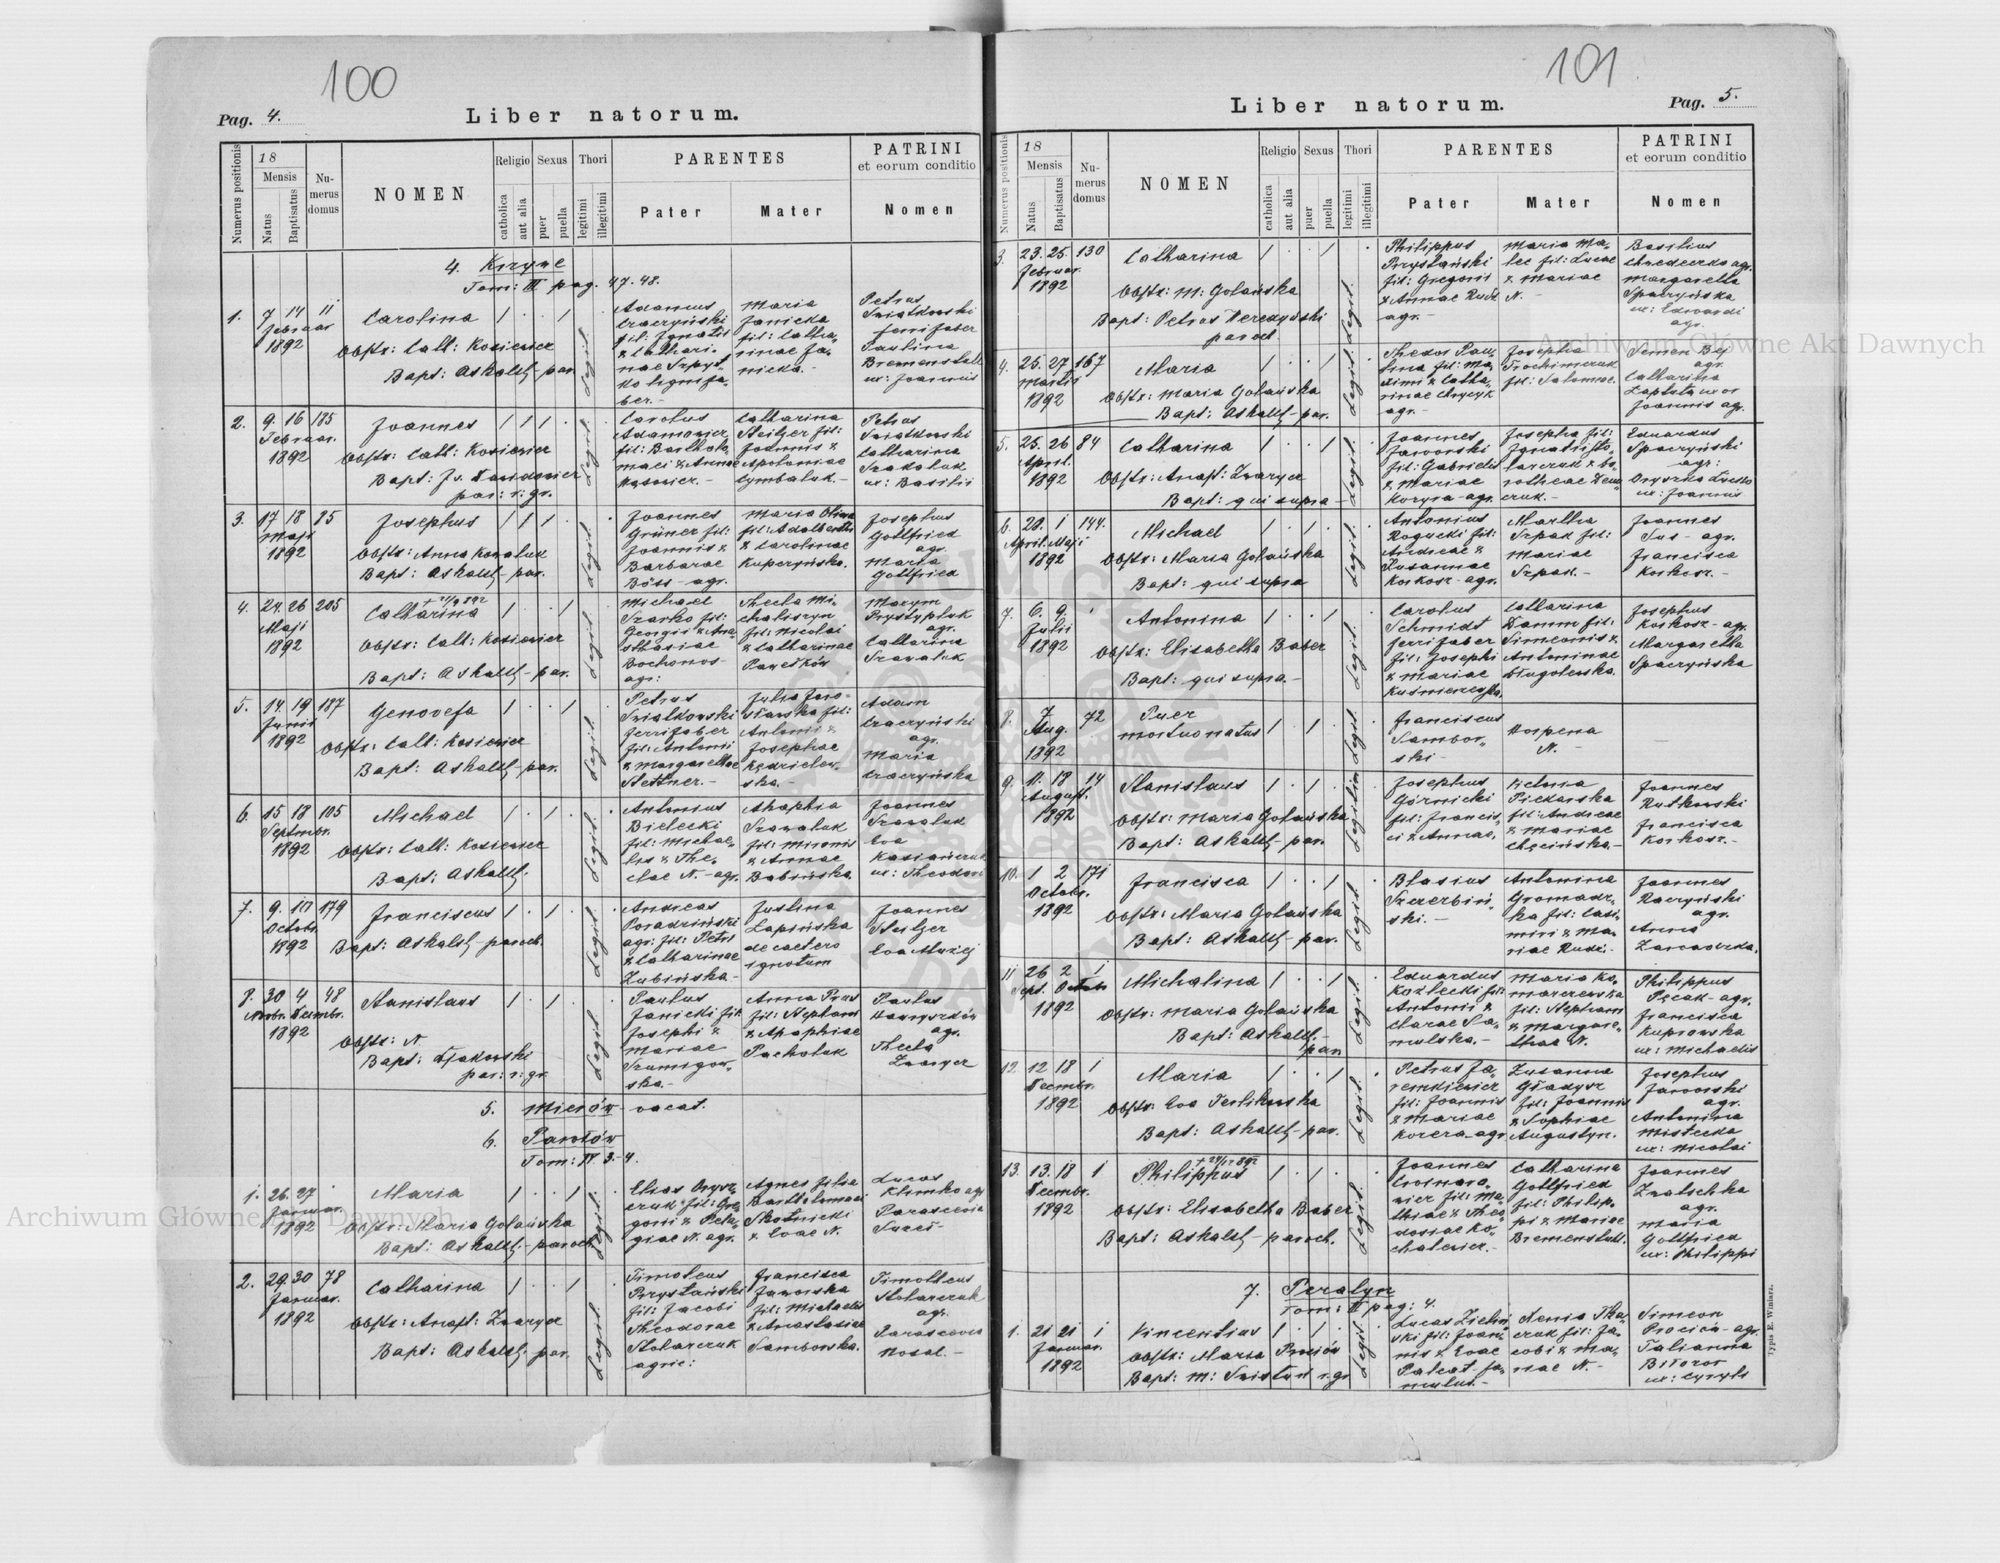 100
Pag. 4.
Liber natorum.
Numerus positionis
18
Mensis
Natus
Baptisatus
Numerus domus
NOMEN
Religio
catholica
aut alia
Sexus
puer
puella
Thori
legitimi
illegitimi
PARENTES
Pater
Mater
PATRINI
et eorum conditio
Nomen
Tom: III pag. 47. 48.
1. 7 14 11
Februar
1892
Carolina
Obstr: Cath: Kosiewicz
Bapt: Askaldt par.
Legit.
Adamus
Czaczyński
fil: Ignatii
Maria
Janicka
fil: Catha-
rinae Ja-
nicka.
Petrus
Swiatkowski
ferrifaber
Paulina
Bremenstull
ux: Joannis
2. 9. 16 185
Februar.
1892
Joannes
Obstr: Cath: Kosiewicz
par: r: gr.
Legit.
Carolus
Adamowicz
fil: Bartholo-
maei & Annae
Catharina
Steitzer fil:
Joannis &
Apoloniae
Cymbaluk.
Petrus
Swiatkowski
Catharina
Szakaluk
ux: Basilii
3. 17 18 85
Maji
1892
Josephus
Obstr: Anna Kowaluk
Bapt: Askaldt par.
Legit.
Joannes
Grüner fil:
Joannis &
Barbarae
Böss agr.
Maria
fil: Adalberti
& Carolinae
Kuperzyńska.
Josephus
Gottfried
agr.
Maria
Gottfried
4. 24. 26 205
Maji
1892
Catharina
Obstr: Cath: Kosiewicz
Bapt: Askaldt par.
Legit.
Michael
Szarko fil:
Georgii & Ana-
stasiae
Bochonos
agr:
Thecla Mi-
chaliszyn
fil: Nicolai
& Catharinae
Maxym
Prystupluk
agr.
Catharina
Szawaluk
5. 14. 19 187
Junii
1892
Genovefa
Obstr: Cath: Kosiewicz
Bapt: Askaldt par.
Legit.
Petrus
Swiatkowski
ferrifaber
fil: Antonii
& Margarethae
Stettner.
Julia Jaro-
sławska fil:
Antonii &
Josephae
Kędzier-
ska.
Adam
Czaczyński
agr.
Maria
Czaczyńska
6. 15 18 105
Septembr.
1892
Michael
Obstr: Cath: Kosiewicz
Bapt: Askaldt.
Legit.
Antonius
Bielecki
fil: Michae-
lis & The-
clae N. agr.
Ahaphia
Szawaluk
fil: Mironis
& Annae
Babińska.
Joannes
Szawaluk
Eva
ux: Theodori
7. 9. 10 179
Octobr.
1892
Franciscus
Bapt: Askaldt paroch.
Legit.
Andreas
Poradziński
agr. fil: Petri
& Catharinae
Zubińska
Justina
Łapińska
de caetero
ignotum
Joannes
Steitzer
8. 30 4 48
Novbr. Decembr.
1892
Stanislaus
Obstr: N
par: r: gr.
Legit
Paulus
Janicki fil:
Josephi &
Mariae
Anna Prus
fil: Stephani
& Ahaphiae
Pacholuk
Paulus
agr.
Thecla
Zwarycz
5. Mierów vacat.
6. Pawłów
Tom: IV 3. 4.
1. 26. 27
Januar.
1892
Maria
Obstr: Maria Golańska
Bapt: Askaldt paroch.
Legit.
Agnes filia
Bartholomaei
Skotnicki
& Evae N.
Lucas
Klimko agr.
Parascevia
2. 29. 30 78
Januar.
1892
Catharina
Obstr: Anast: Zwarycz
Bapt: Askaldt par.
Legit.
Timoteus
Przystański
fil: Jacobi
Theodorae
Stolarczuk
agric:
Francisca
Jaworska
fil: Michaelis
& Anastasiae
Samborska.
Timotheus
Stolarczuk
agr.
Parascevia
Nosal.
101
Pag. 5.
Liber natorum.
Numerus positionis
18
Mensis
Natus
Baptisatus
Numerus domus
NOMEN
Religio
catholica
aut alia
Sexus
puer
puella
Thori
legitimi
illegitimi
PARENTES
Pater
Mater
PATRINI
et eorum conditio
Nomen
3. 23. 25. 130
Februar.
1892
Catharina
Obstr: M: Golańska
paroch.
Legit.
Philippus
Przystański
fil: Gregorii
& Annae Rudz
agr.
Maria Ma-
lec fil: Lucae
& Mariae
N.
Basilius
agr.
Margaretha
Spaczyńska
ux: Edwardi
agr.
4. 25. 27 167
Martii
1892
Maria
Obstr: Maria Golańska
Bapt: Askaldt par.
Legit.
agr.
Josepha
Trochimczuk
fil: Salomeae.
Semen Bej
agr.
Catharina
uxor
Joannis agr.
5. 25. 26 84
April.
1892
Catharina
Obstr: Anast: Zwarycz
Bapt: qui supra
Legit.
Joannes
Jaworski
fil: Gabrielis
& Mariae
Koryra agr.
Josepha fil:
Ignatii Sto-
larczuk & Do-
rotheae
Eduardus
Spaczyński
agr:
ux: Joannis
6. 20. 1 144.
April. Maji
1892
Michael
Obstr: Maria Golańska
Bapt: qui supra
Legit.
Antonius
Rogucki fil:
Andreae &
Susannae
Korkosz agr.
Martha
Szpak fil:
Mariae
Szpak.
Joannes
Sus agr.
Francisca
Korkosz.
7. 6. 9.
Julii
1892
Antonina
Obstr: Elisabetha Baber
Bapt: qui supra.
Legit.
Carolus
Schmidt
ferrifaber
fil: Josephi
& Mariae
Catharina
Damm fil:
Simeonis &
Antoninae
Długolewska.
Josephus
Korkosz agr.
Margaretha
Spaczyńska
8. 7 72
Aug.
1892
Puer
mortuo natus
Legit.
Franciscus
Sambor-
ski
Hospena
N.
9. 11. 18 14
August.
1892
Stanislaus
Obstr: Maria Golańska
Bapt: Askaldt par.
Legitim
Josephus
Górnicki
fil: Francis-
ci & Annae.
Victoria
Piekarska
fil: Andreae
& Mariae
Chęcińska.
Joannes
Rutkowski
Francisca
Korkosz.
10. 1 2 171
Octobr.
1892
Francisca
Obstr: Maria Golańska
Bapt: Askaldt par.
Legit.
Blasius
Szczerbiń-
ski.
Antonina
Gromadz-
ka fil: Casi-
miri & Ma-
riae Rudz.
Joannes
Raczyński
agr.
Anna
11 26 2 1
Sept. Octobr
1892
Michalina
Obstr: Maria Golańska
Bapt: Askaldt.
par
Legit
Eduardus
Kozłecki fil:
Antonii &
Clarae Fa-
mulska.
Maria Ko-
marzewska
fil: Stephani
& Margare-
thae N.
Philippus
Pęcak agr.
Francisca
Kuprowska
ux: Michaelis
12. 12 18 1
Decembr.
1892
Maria
Obstr: Eva Terlikowska
Bapt: Askaldt par.
Legit.
Petrus Ja-
remkiewicz
fil: Joannis
& Mariae
Korera agr
Zusanna
Gładysz
fil: Joannis
& Sophiae
Augustyn.
Josephus
Jaworski
agr.
Antonina
Mistecka
ux: Nicolai
13. 13. 18 1
Decembr.
1892
Philippus
Obstr: Elisabetha Baber
Bapt: Askaldt paroch.
Legit.
Joannes
Catharina
Gottfried
fil: Philip-
pi & Mariae
Bremenstull.
Joannes
Zwatschka
agr.
Maria
Gottfried
ux: Philippi
7. Peratyn
Tom: II pag: 4.
1. 21 21 1
Januar.
1892
Vincentius
Obstr: Maria Prociów
Legit.
Lucas Zieliń-
ski fil: Joan-
nis & Evae
fa-
mulus.
Xenia
fil: Ja-
cobi & Ma-
riae N.
Simeon
Prociów agr.
Talianna
ux: Cyryli
Typis E. Winiarz.
Archiwum Główne Akt Dawnych
Archiwum Główne Akt Dawnych